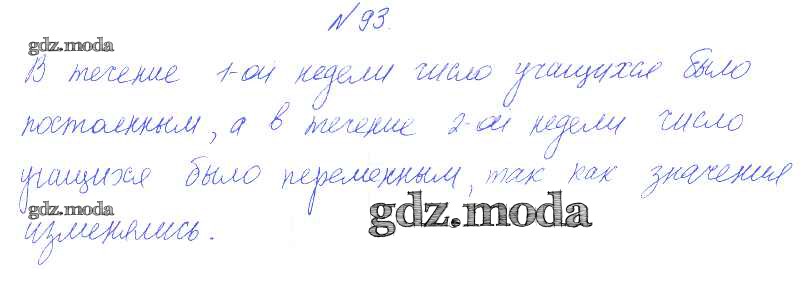 № 93.
gdz.moda
В течение 1-ой недели число учащихся было
постоянным, а в течение 2-ой недели число
учащихся было переменным, так как значения
gdz.moda gdz.moda
изменялись.